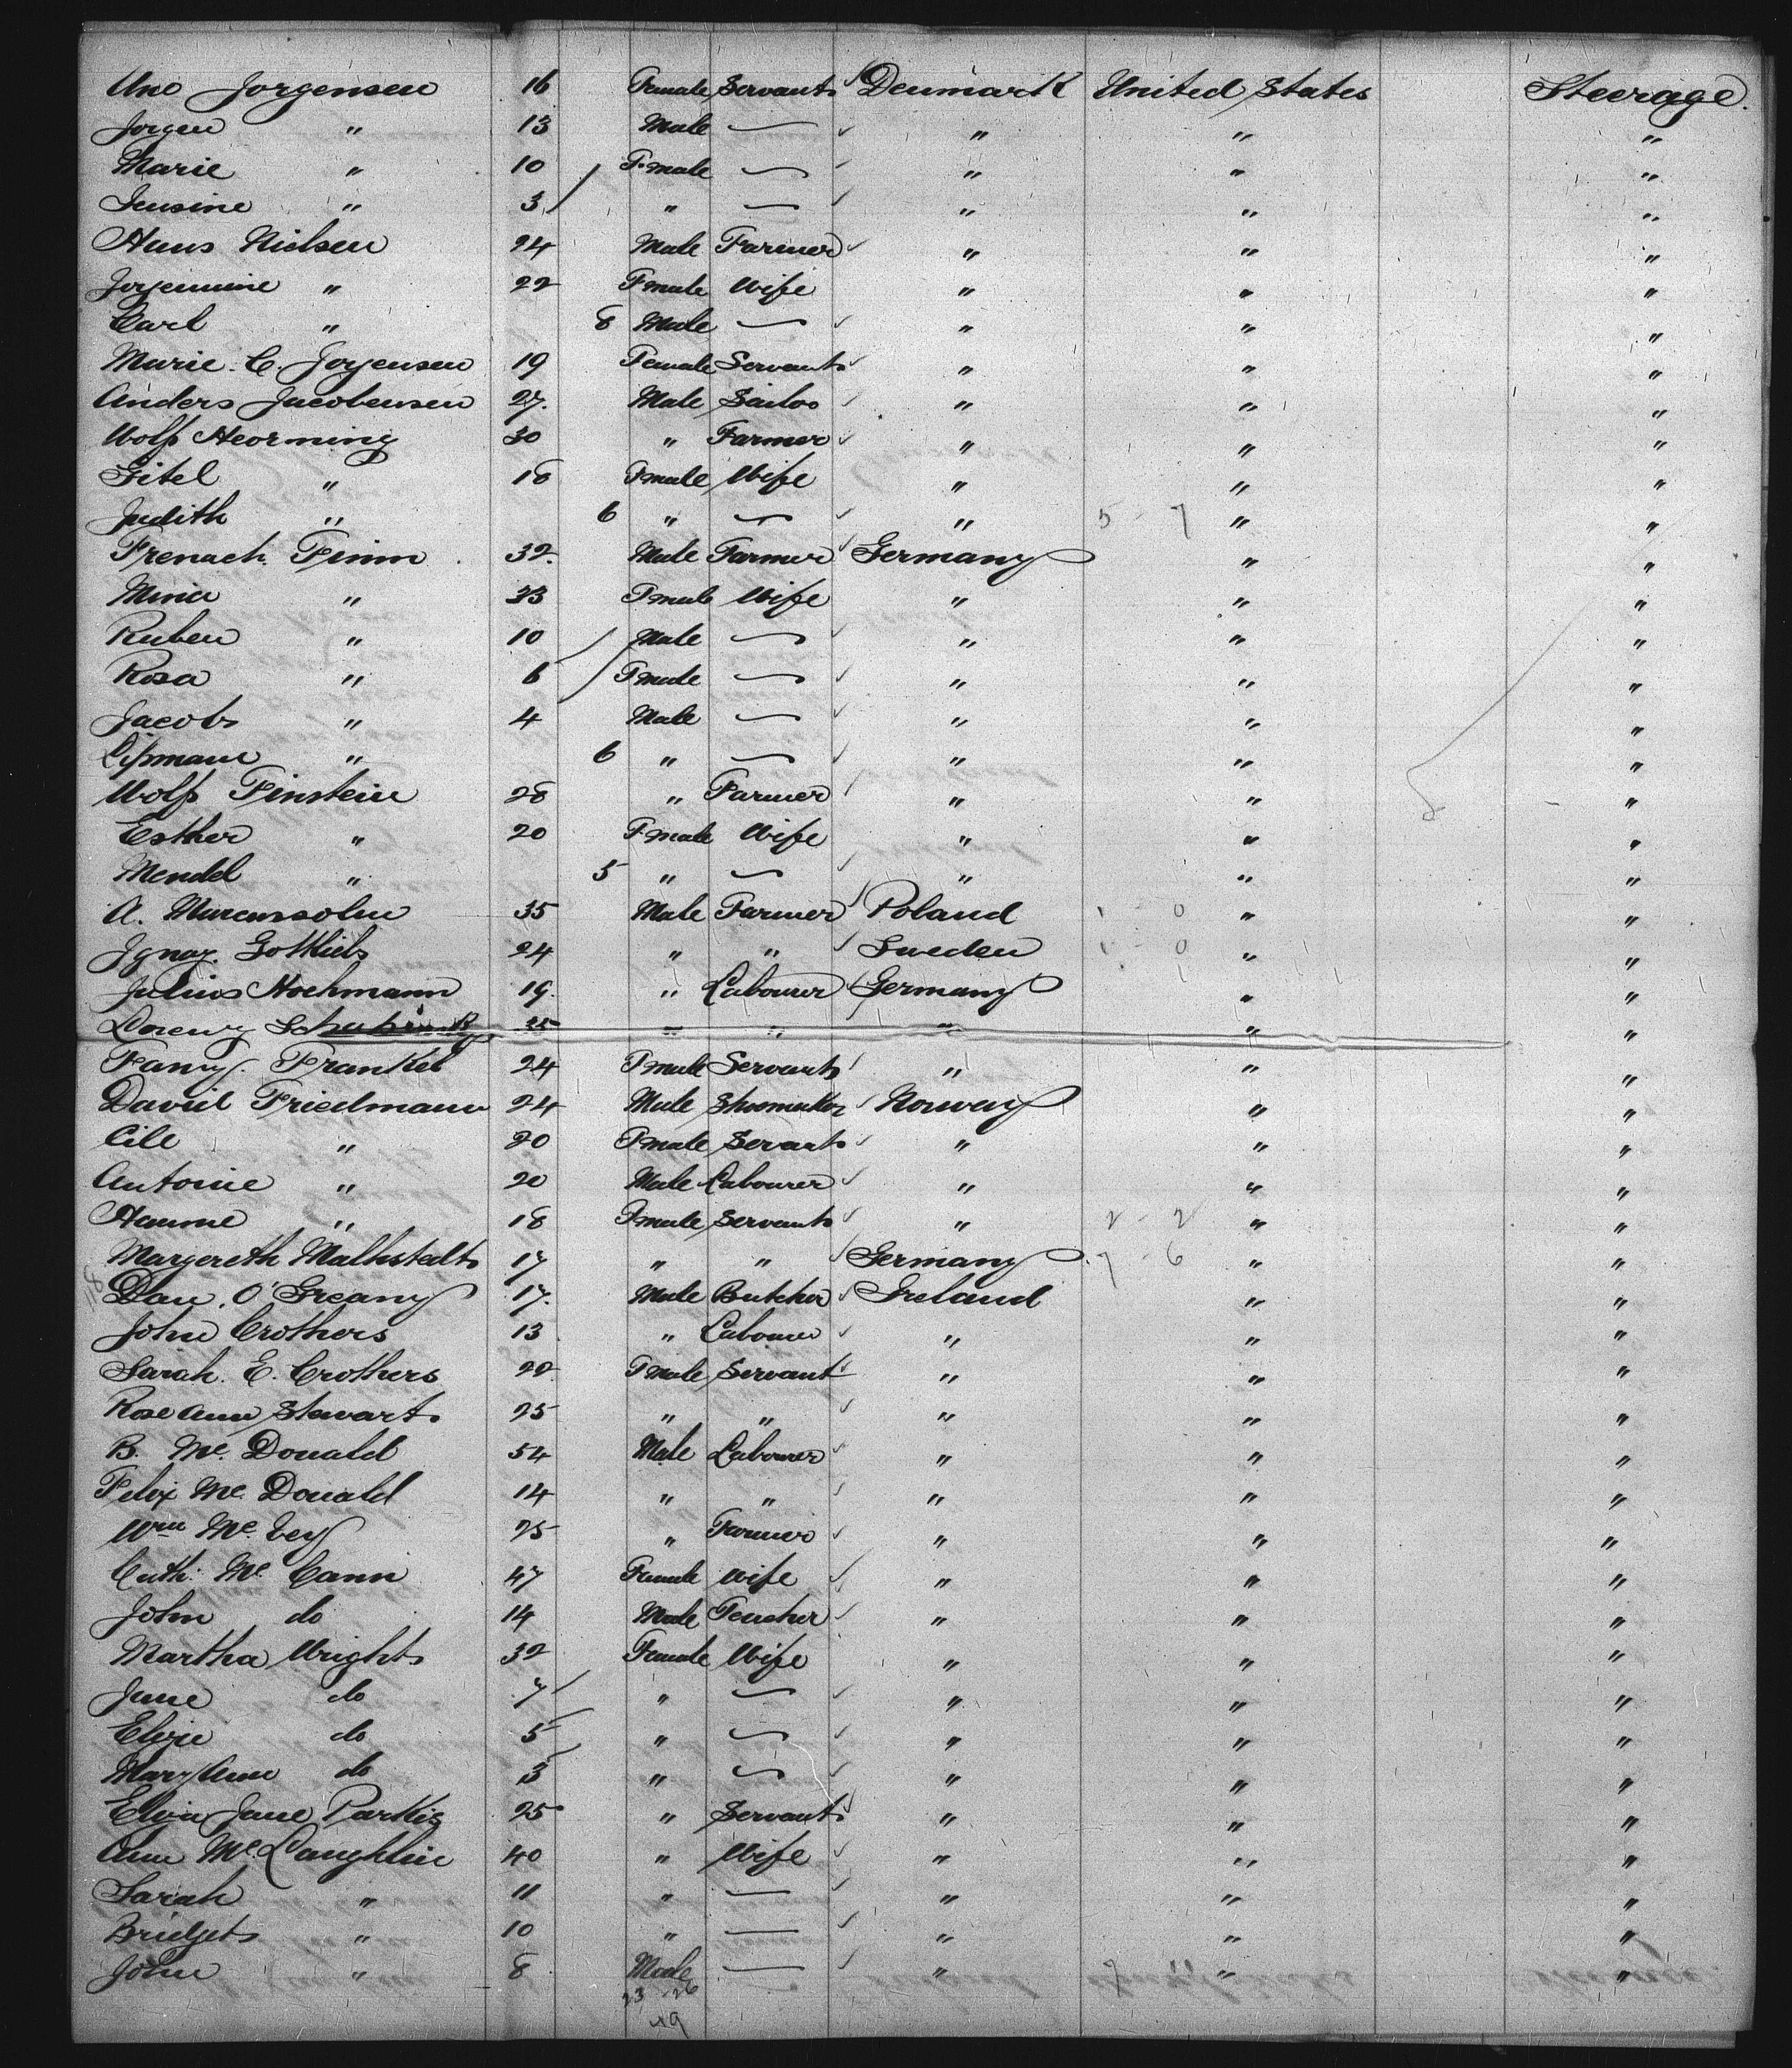 Ane Jorgensen 16 Female Servant Denmark United States Steerage.
Jorgen " 13 Male — " " "
Marie " 10 Fmale — " " "
Jensine " 3 " — " " "
Hans Nielsen 24 Male Farmer " " "
Jorgenmine " 22 Fmale Wife " " "
Carl " 8 Male — " " "
Marie C. Jorgensen 19 Female Servant " " "
Anders Jacobensen 27. Male Sailor " " "
Wolf Heorming 30 " Farmer " " "
Gitel " 18 Fmale Wife " " "
Judith " 6 " — " 5 - 7 " "
Frenach Finn 32. Male Farmer Germany " "
Mina " 33 Fmale Wife " " "
Ruben " 10 Male — " " "
Rosa " 6 Fmale — " " "
Jacob " 4 Male — " " "
Lipmann " 6 " — " " "
Wolf Finstein 28 " Farmer " " "
Esther " 20 Fmale Wife " " "
Mendel " 5 " — " " "
A. Marcussohn 35 Male Farmer Poland 1 - 0 " "
Ignaz. Gottlieb 24 " " Sweden 1 - 0 " "
Julius Hochmann 19. " Labourer Germany " "
35 " " " " "
Fanny. Frankel 24 Fmale Servant " " "
David Friedmann 24 Male Shoemaker Norway " "
Cile " 20 Fmale Servant " " "
Antonie " 20 Male Labourer " " "
Hanne " 18 Fmale Servant " 2 - 2 " "
Margereth Malhstedt 17 " " Germany 7 - 6 " "
Dan. O'Greany 17. Male Butcher Ireland " "
John Crothers 13 " Labourer " " "
Sarah. E. Crothers 22 Fmale Servant " " "
Rose Ann Stewart 25 " " " " "
B. Mc Donald 54 Male Labourer " " "
Felix Mc Donald 14 " " " " "
Wm Mc Vey 25 " Farmer " " "
Cath: Mc Cann 47 Female Wife " " "
John do 14 Male Teacher " " "
Martha Wright 32 Female Wife " " "
Jane do 7 " — " " "
Eliza do 5 " — " " "
Mary Ann do 3 " — " " "
Eliza Jane Parkis 25 " Servant " " "
Ann Mc Laughlin 40 " Wife " " "
Sarah " 11 " — " " "
Bridget " 10 " — " " "
John " 8 Male — " 7 " "
23 26
49